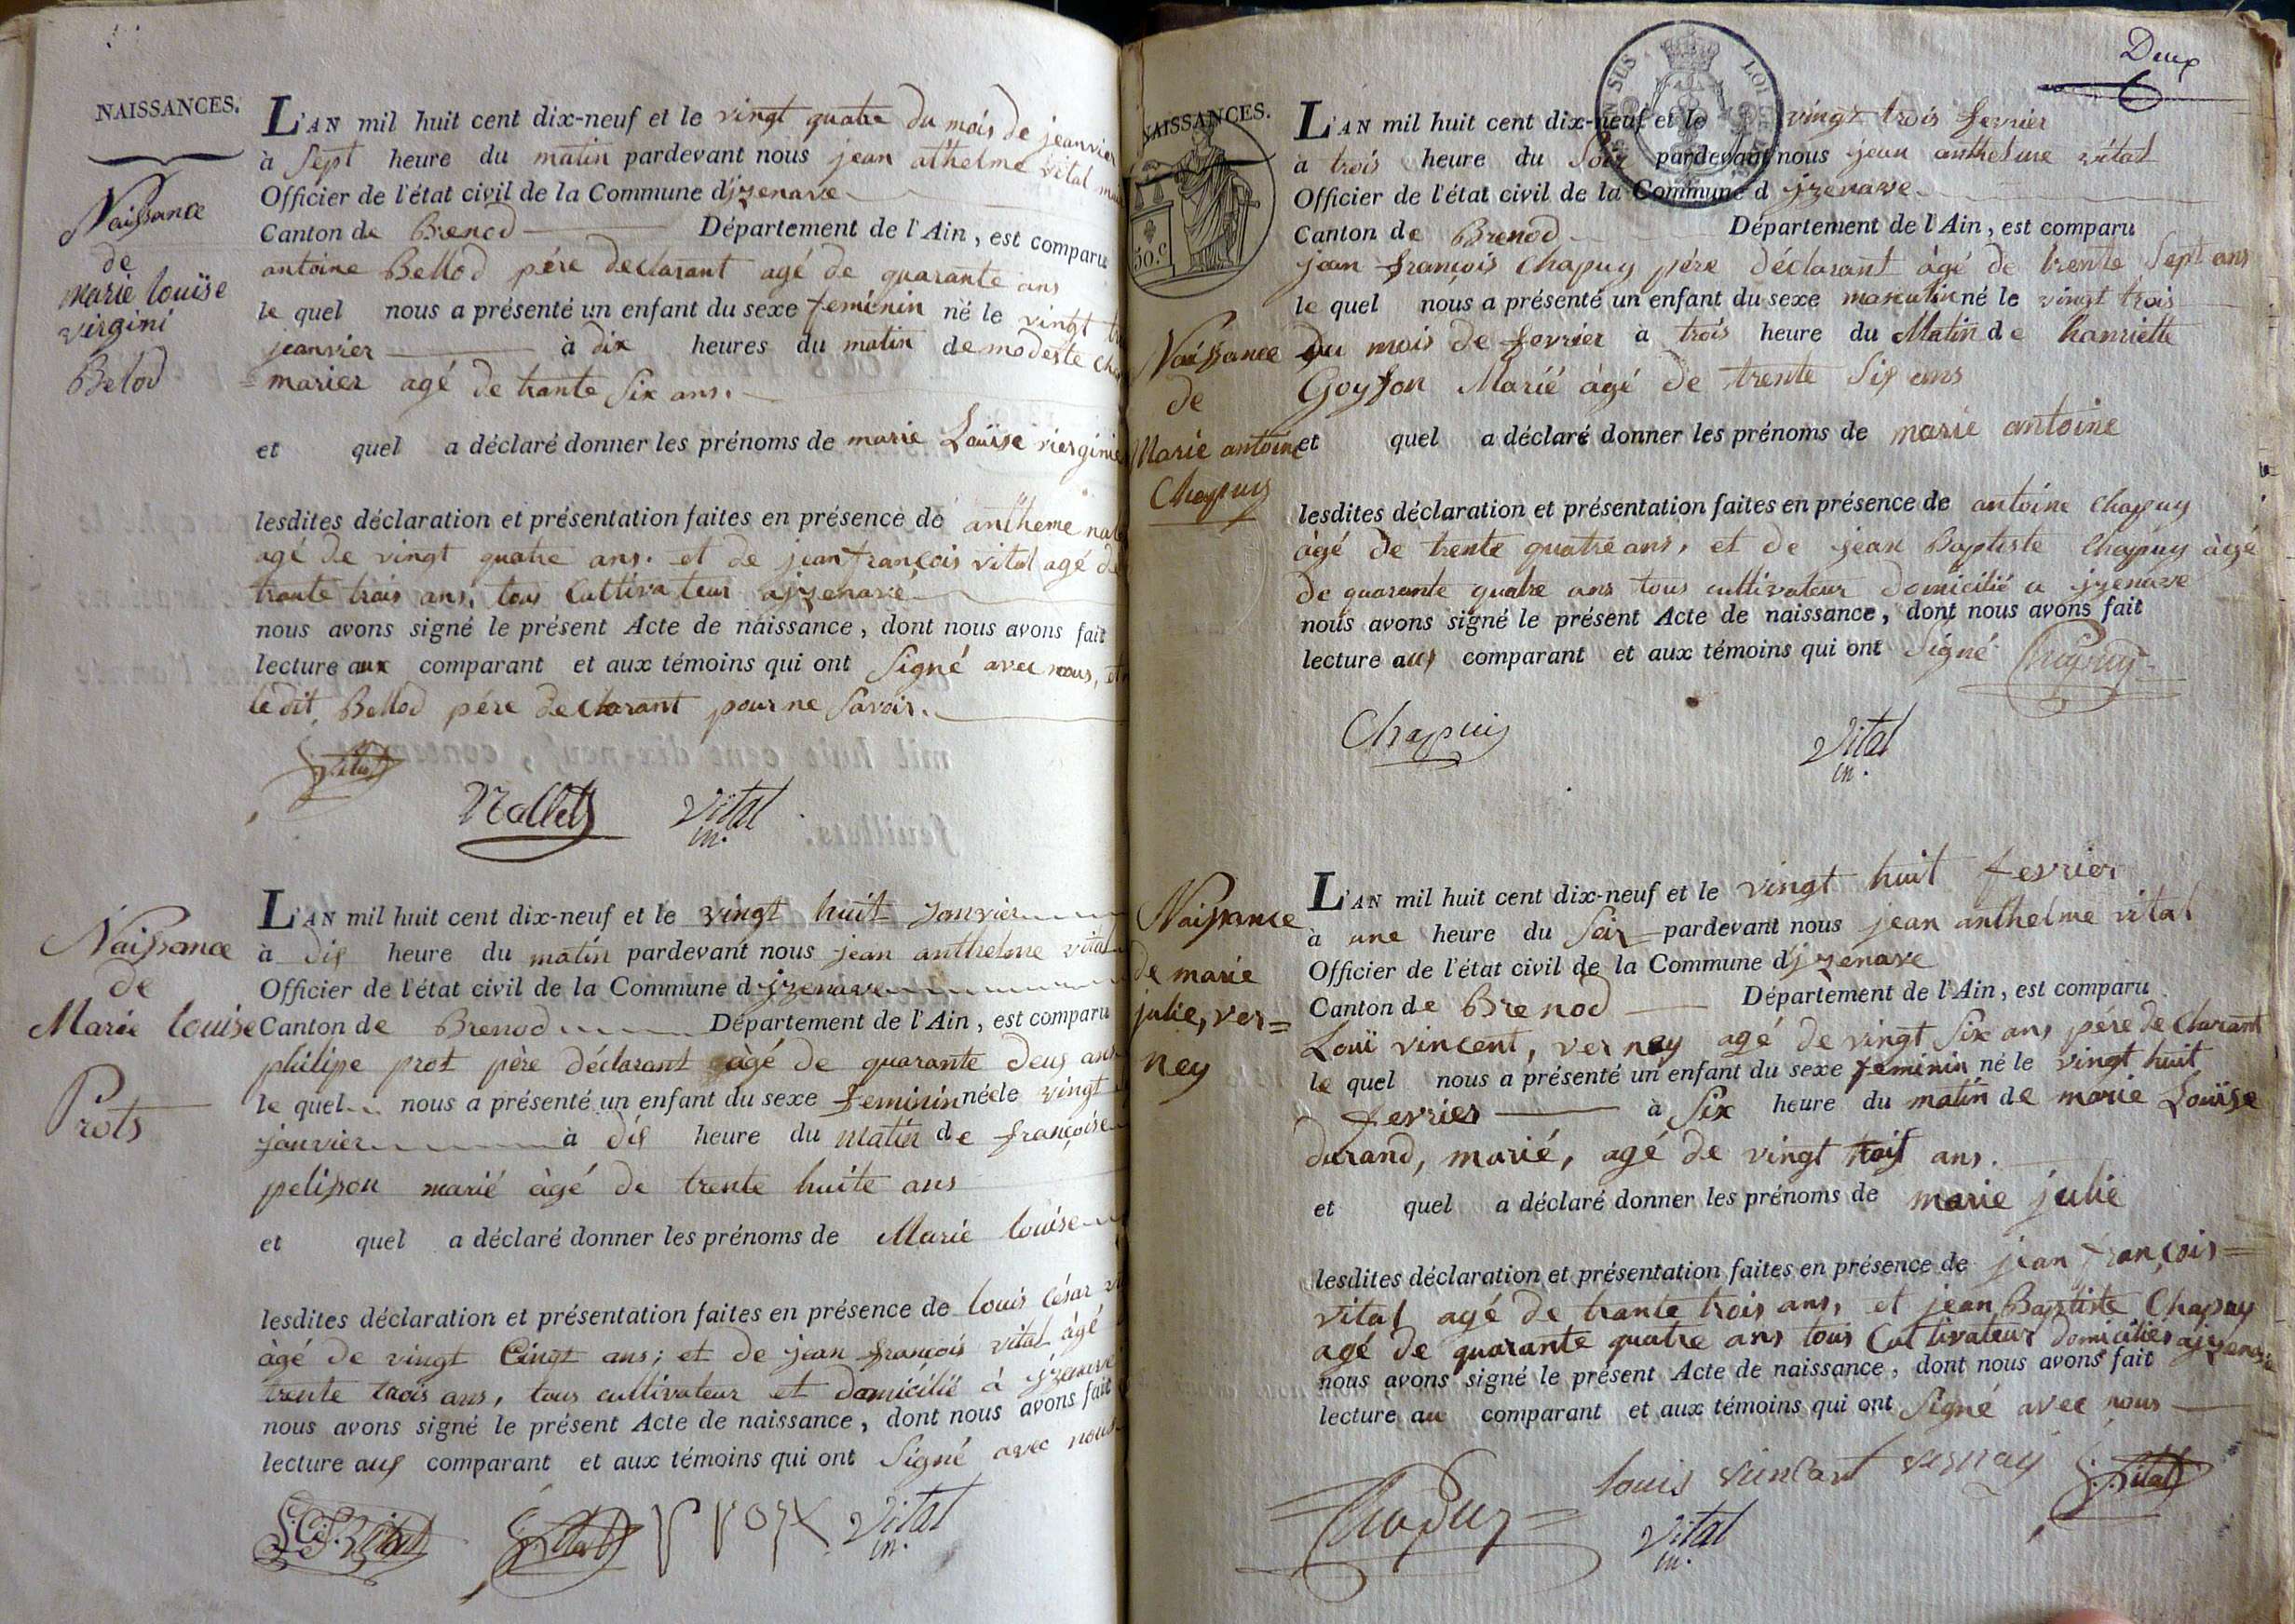 NAISSANCES.
Naissance
de
marie louïse
virgini
Belod
L'AN mil huit cent dix-neuf et le vingt quatre du mois de jeanvier
à Sept heure du matin pardevant nous jean athelme vital
Officier de l'état civil de la Commune d'jzenave
Canton de Brenod Département de l'Ain, est comparu
antoine Bellod pére declarant agé de quarante ans
le quel nous a présenté un enfant du sexe feminin né le vingt
jeanvier à dix heures du matin de modeste
=marier agé de trante Six ans.
et quel a déclaré donner les prénoms de marie Louïse vierginie
lesdites déclaration et présentation faites en présence de antheme
agé de vingt quatre ans. et de jean françois vital agé de
trante trois ans, tous Cultivateur ajzenave
nous avons signé le présent Acte de naissance, dont nous avons fait
lecture aux comparant et aux témoins qui ont Signé avec nous,
ledit Bellod pére declarant pour ne Savoir.
Vital
Nallet
Vital
m.
Naissance
de
Marie louise
Prots
L'AN mil huit cent dix-neuf et le vingt huit janvier
à dix heure du matin pardevant nous jean anthelme vital
Officier de l'état civil de la Commune d jzenave
Canton de Brenod Département de l'Ain, est comparu
philipe prot père déclarant àgé de quarante deux ans
le quel nous a présenté un enfant du sexe feminin née le vingt
janvier à dix heure du matin de françoise
pelisson marié àgé de trente huite ans
et quel a déclaré donner les prénoms de Marie louise
lesdites déclaration et présentation faites en présence de louis César
àgé de vingt Cinqt ans; et de jean françois vital àgé
trente trois ans, tous cultivateur et domicilié à jzenave
nous avons signé le présent Acte de naissance, dont nous avons fait
lecture aux comparant et aux témoins qui ont Signé avec nous
Vital
Vital
prost
Vital
m.
Deux
NAISSANCES.
50.c
Naissance
de
Marie antoine
Chapuy
L'AN mil huit cent dix-neuf et le vingt trois fevrier
à trois heure du Soir pardevant nous jean anthelme vital
Officier de l'état civil de la Commune d jzenave
Canton de Brenod Département de l'Ain, est comparu
jean françois Chapuy pére déclarant àgé de trente Sept ans
le quel nous a présenté un enfant du sexe masculin né le vingt trois
du mois de fevrier à trois heure du Matin de hanriette
Goyffon Marié àgé de trente Six ans
et quel a déclaré donner les prénoms de marie antoine
lesdites déclaration et présentation faites en présence de antoine Chapuy
àgé de trente quatre ans, et de jean Baptiste Chapuy àgé
de quarante quatre ans tous cultivateur domicilié a jzenave
nous avons signé le présent Acte de naissance, dont nous avons fait
lecture aux comparant et aux témoins qui ont Signé Chapuy
Chapuis
Vital
m.
Naissance
de marie
julie, ver=
ney
L'AN mil huit cent dix-neuf et le vingt huit fevrier
à une heure du Soir pardevant nous jean anthelme vital
Officier de l'état civil de la Commune d'jzenave
Canton de Brenod Département de l'Ain, est comparu
Louï vincent, verney agé de vingt Six ans pére declarant
le quel nous a présenté un enfant du sexe feminin né le vingt huit
fevrier à Six heure du matin de marie Louïse
durand, marié, agé de vingt trois ans.
et quel a déclaré donner les prénoms de marie julie
lesdites déclaration et présentation faites en présence de jean françois=
vital agé de trante trois ans, et jean Baptiste Chapuy
agé de quarante quatre ans tous Cultivateur domiciliés ajzenave
nous avons signé le présent Acte de naissance, dont nous avons fait
lecture au comparant et aux témoins qui ont Signé avec nous
Chapuy
louis vincant vernay
Vital
Vital
m.